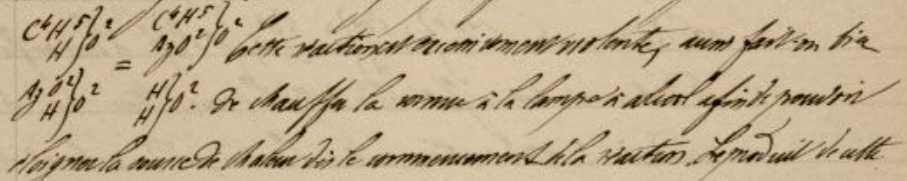 C⁴H⁵}O² = C⁴H⁵}O² Cette réaction est excessivement violente, aussi fait-on bien
H} AzO²}
AzO²}O² H}O². de chauffer la cornue à la lampe à alcool afin de pouvoir
H} H}
éloigner la source de chaleur dès le commencement de la réaction. Le produit de cette